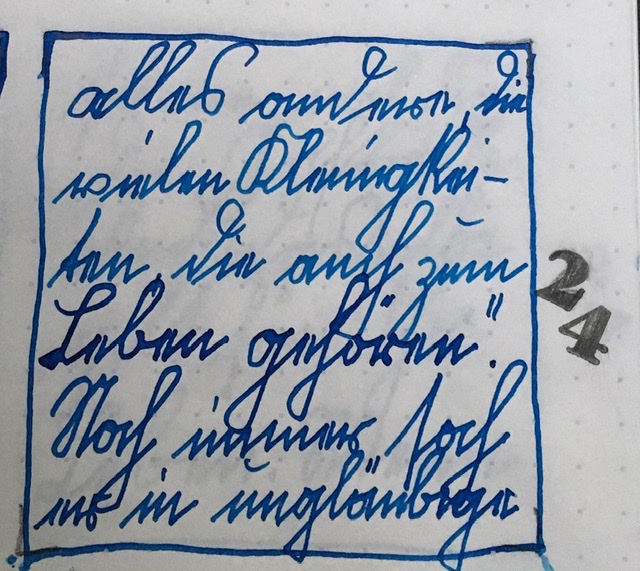 alles andere, die
vielen Kleinigkei-
ten, die auch zum
Leben gehören."
Noch immer sah
er in ungläubige
24